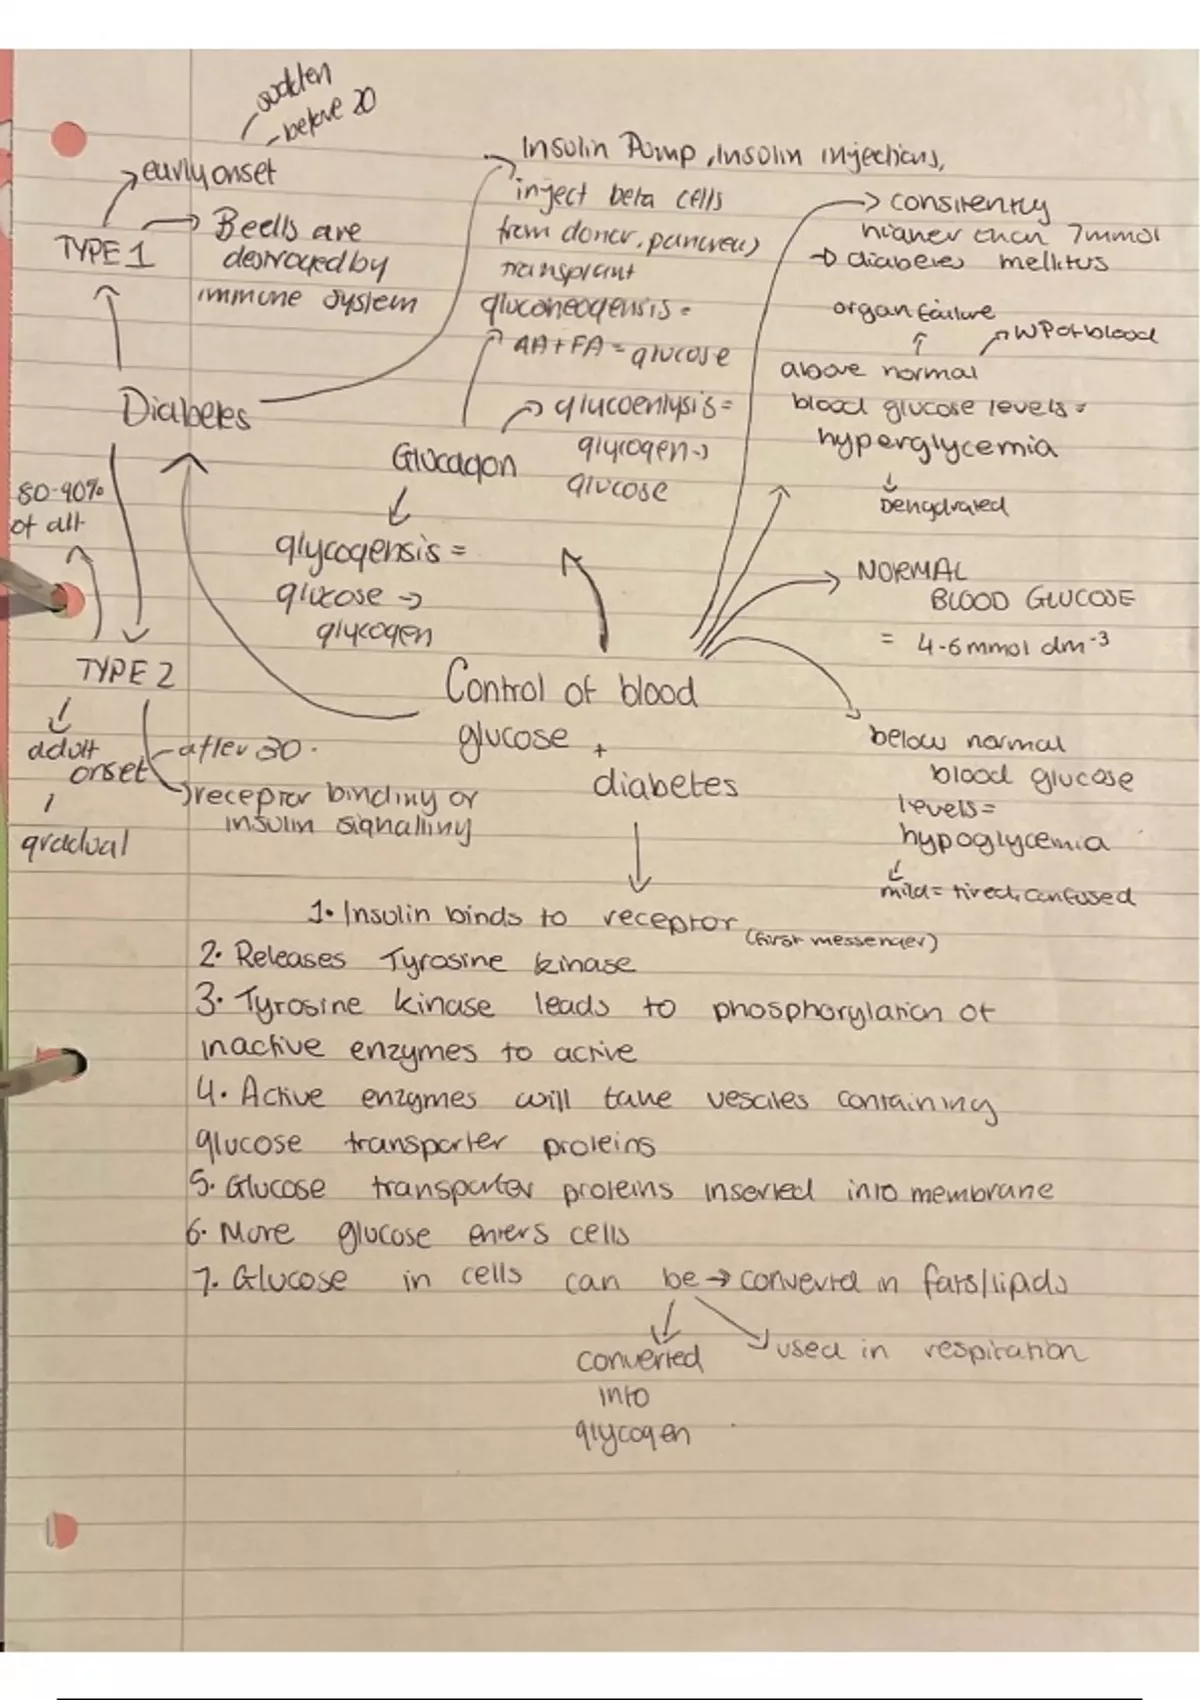 sudden
- before 20
early onset
TYPE 1
B cells are
destroyed by
immune system
Diabetes
80-90%
of all
TYPE 2
adult
onset
gradual
- after 30.
receptor binding or
insulin signalling
Insulin Pump, Insulin injections,
inject beta cells
from donor, pancreas
transplant
gluconeogensis =
AA + FA = glucose
Glucagon
glucoenlysis =
glycogen →
glucose
glycogensis =
glucose →
glycogen
consistently
higher than 7mmol
→ diabetes mellitus
organ failure
WP of blood
above normal
blood glucose levels =
hyperglycemia
Dehydrated
NORMAL
BLOOD GLUCOSE
= 4-6 mmol dm-³
below normal
blood glucose
levels =
hypoglycemia
mild = tired, confused
Control of blood
glucose +
diabetes
1. Insulin binds to receptor (first messenger)
2. Releases Tyrosine kinase
3. Tyrosine kinase leads to phosphorylation of
inactive enzymes to active
4. Active enzymes will take vesciles containing
glucose transporter proteins
5. Glucose transporter proteins inserted into membrane
6. More glucose enters cells
7. Glucose in cells can be → converted in fats/lipids
used in respiration
converted
into
glycogen